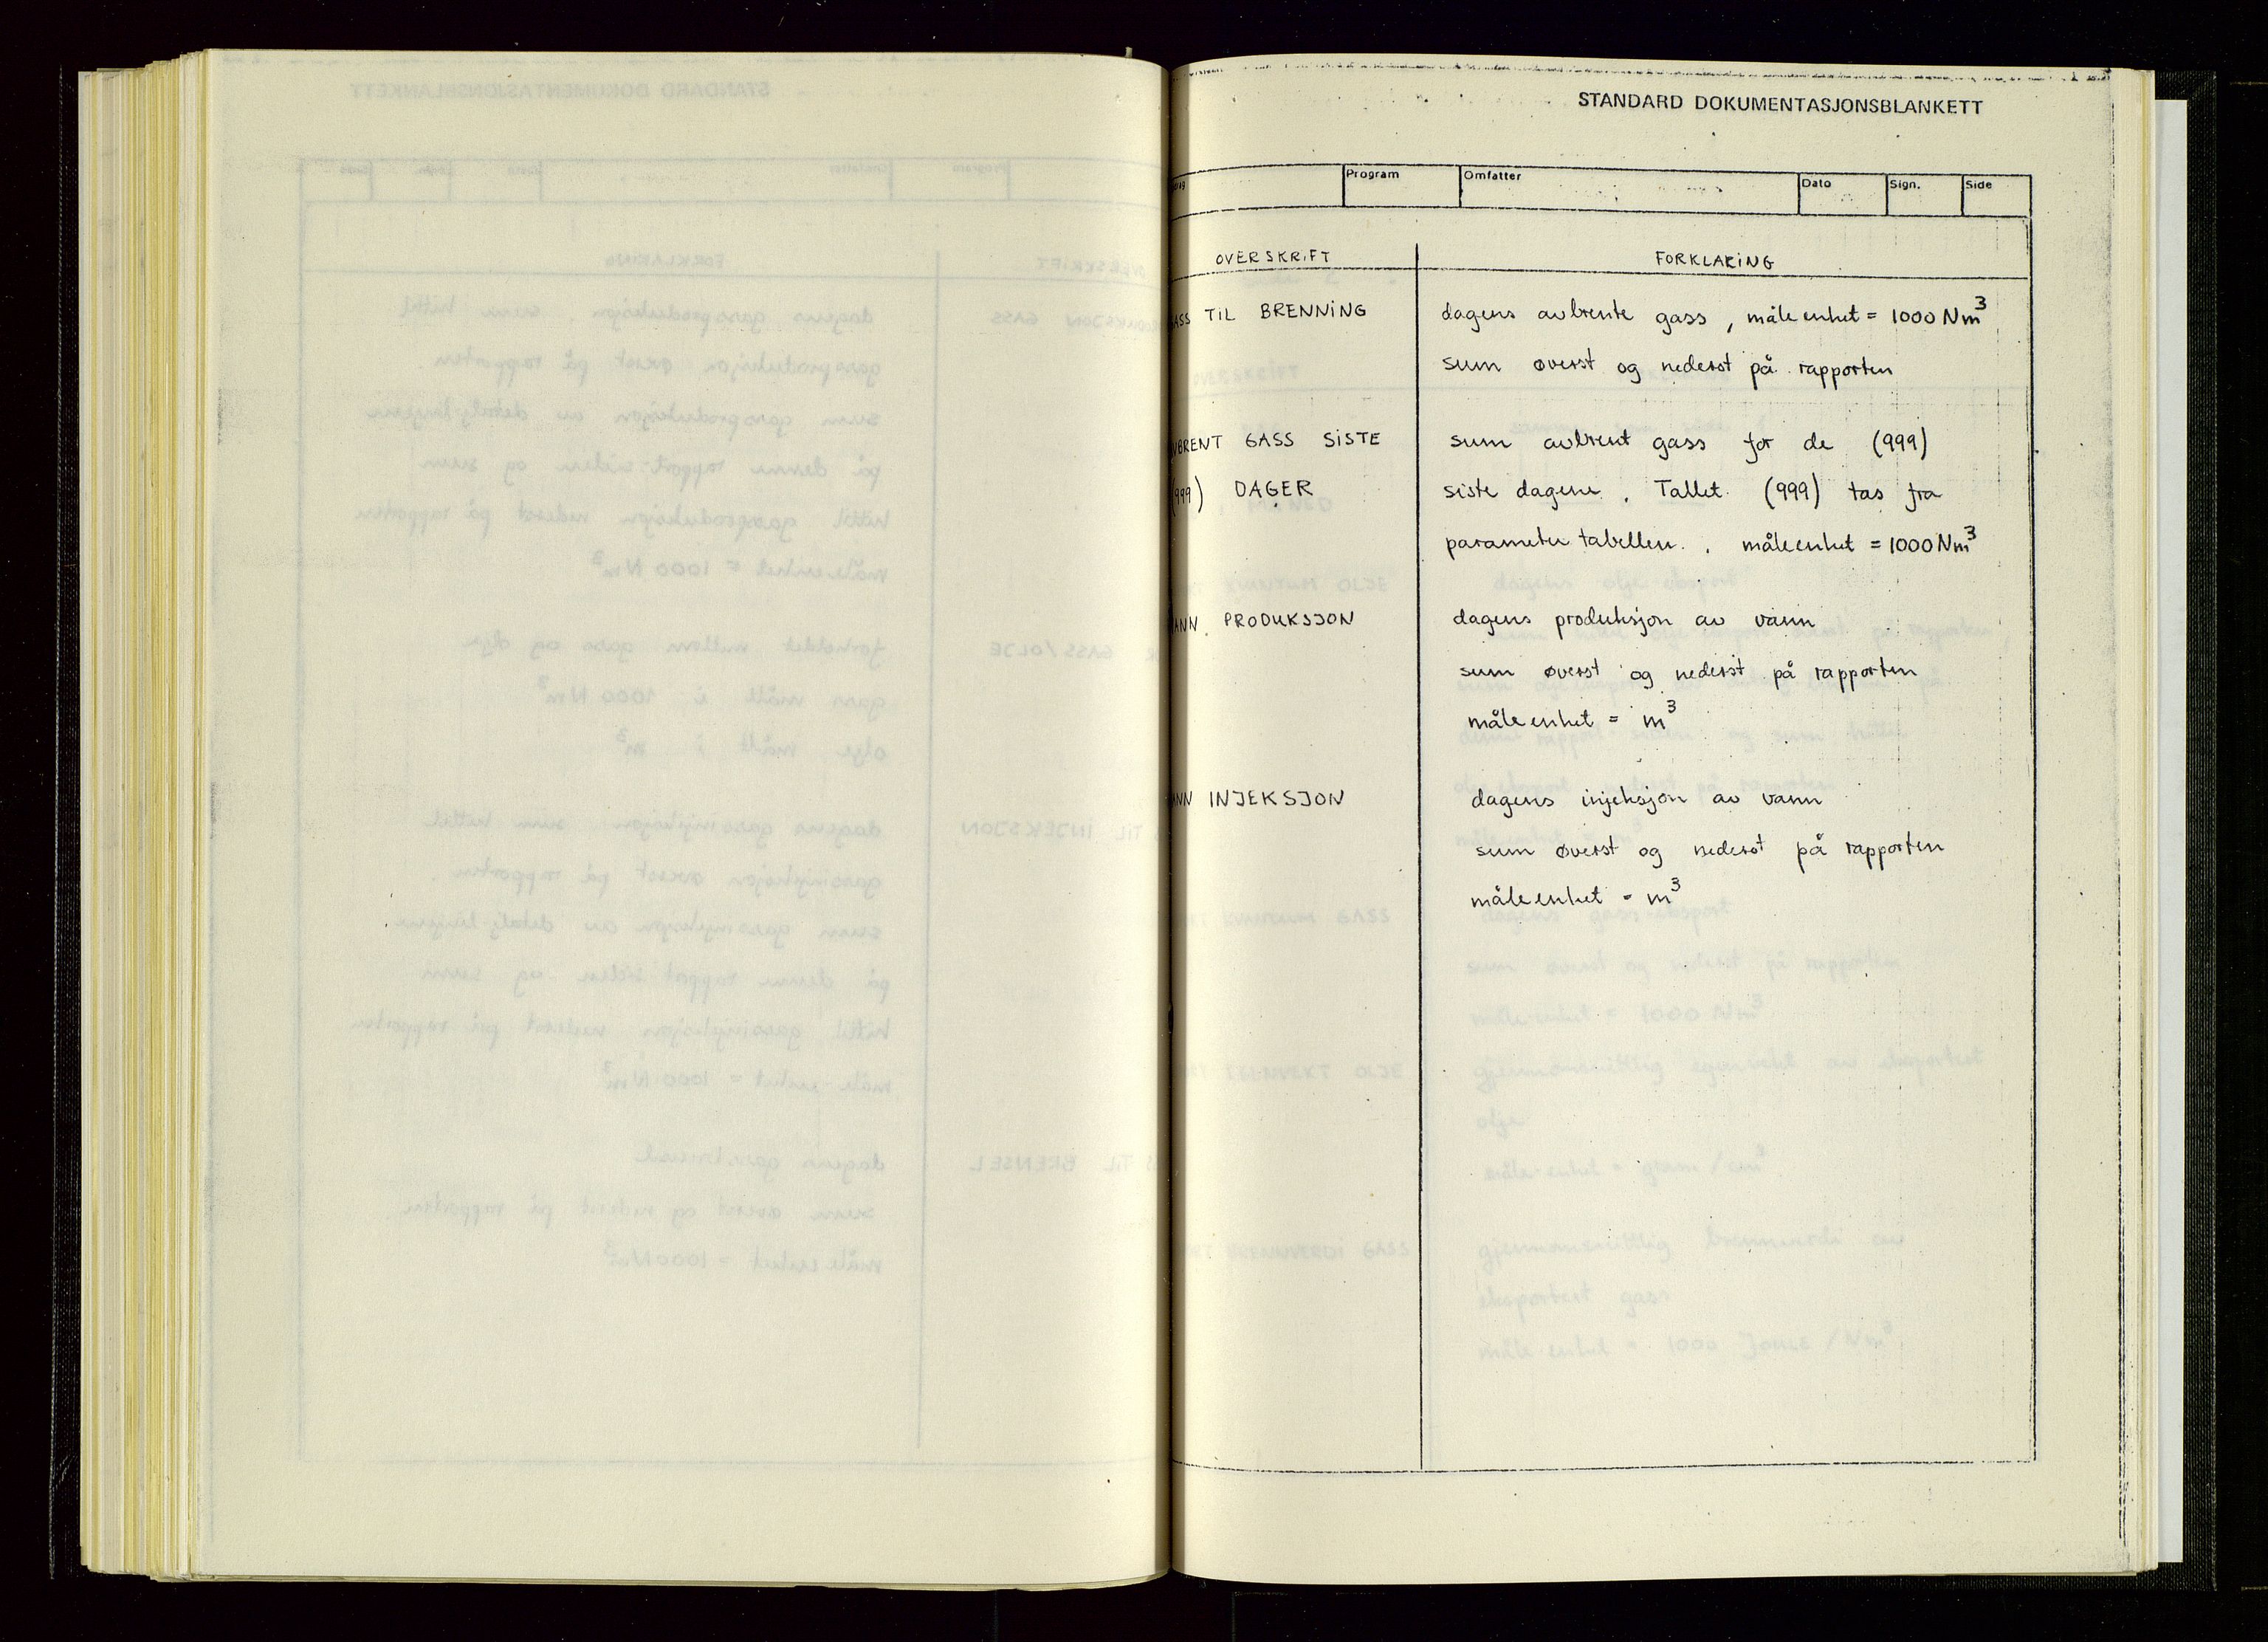 STANDARD DOKUMENTASJONSBLANKETT
Program Omfatter Dato Sign. Side
OVERSKRIFT FORKLARING
TIL BRENNING dagens avbrente gass, måleenhet = 1000 Nm³
sum øverst og nederst på rapporten
GASS SISTE sum avbrent gass for de (999)
DAGER siste dagene. Tallet (999) tas fra
parameter tabellen. måleenhet = 1000 Nm³
PRODUKSJON dagens produksjon av vann
sum øverst og nederst på rapporten
måleenhet = m³
INJEKSJON dagens injeksjon av vann
sum øverst og nederst på rapporten
måleenhet = m³